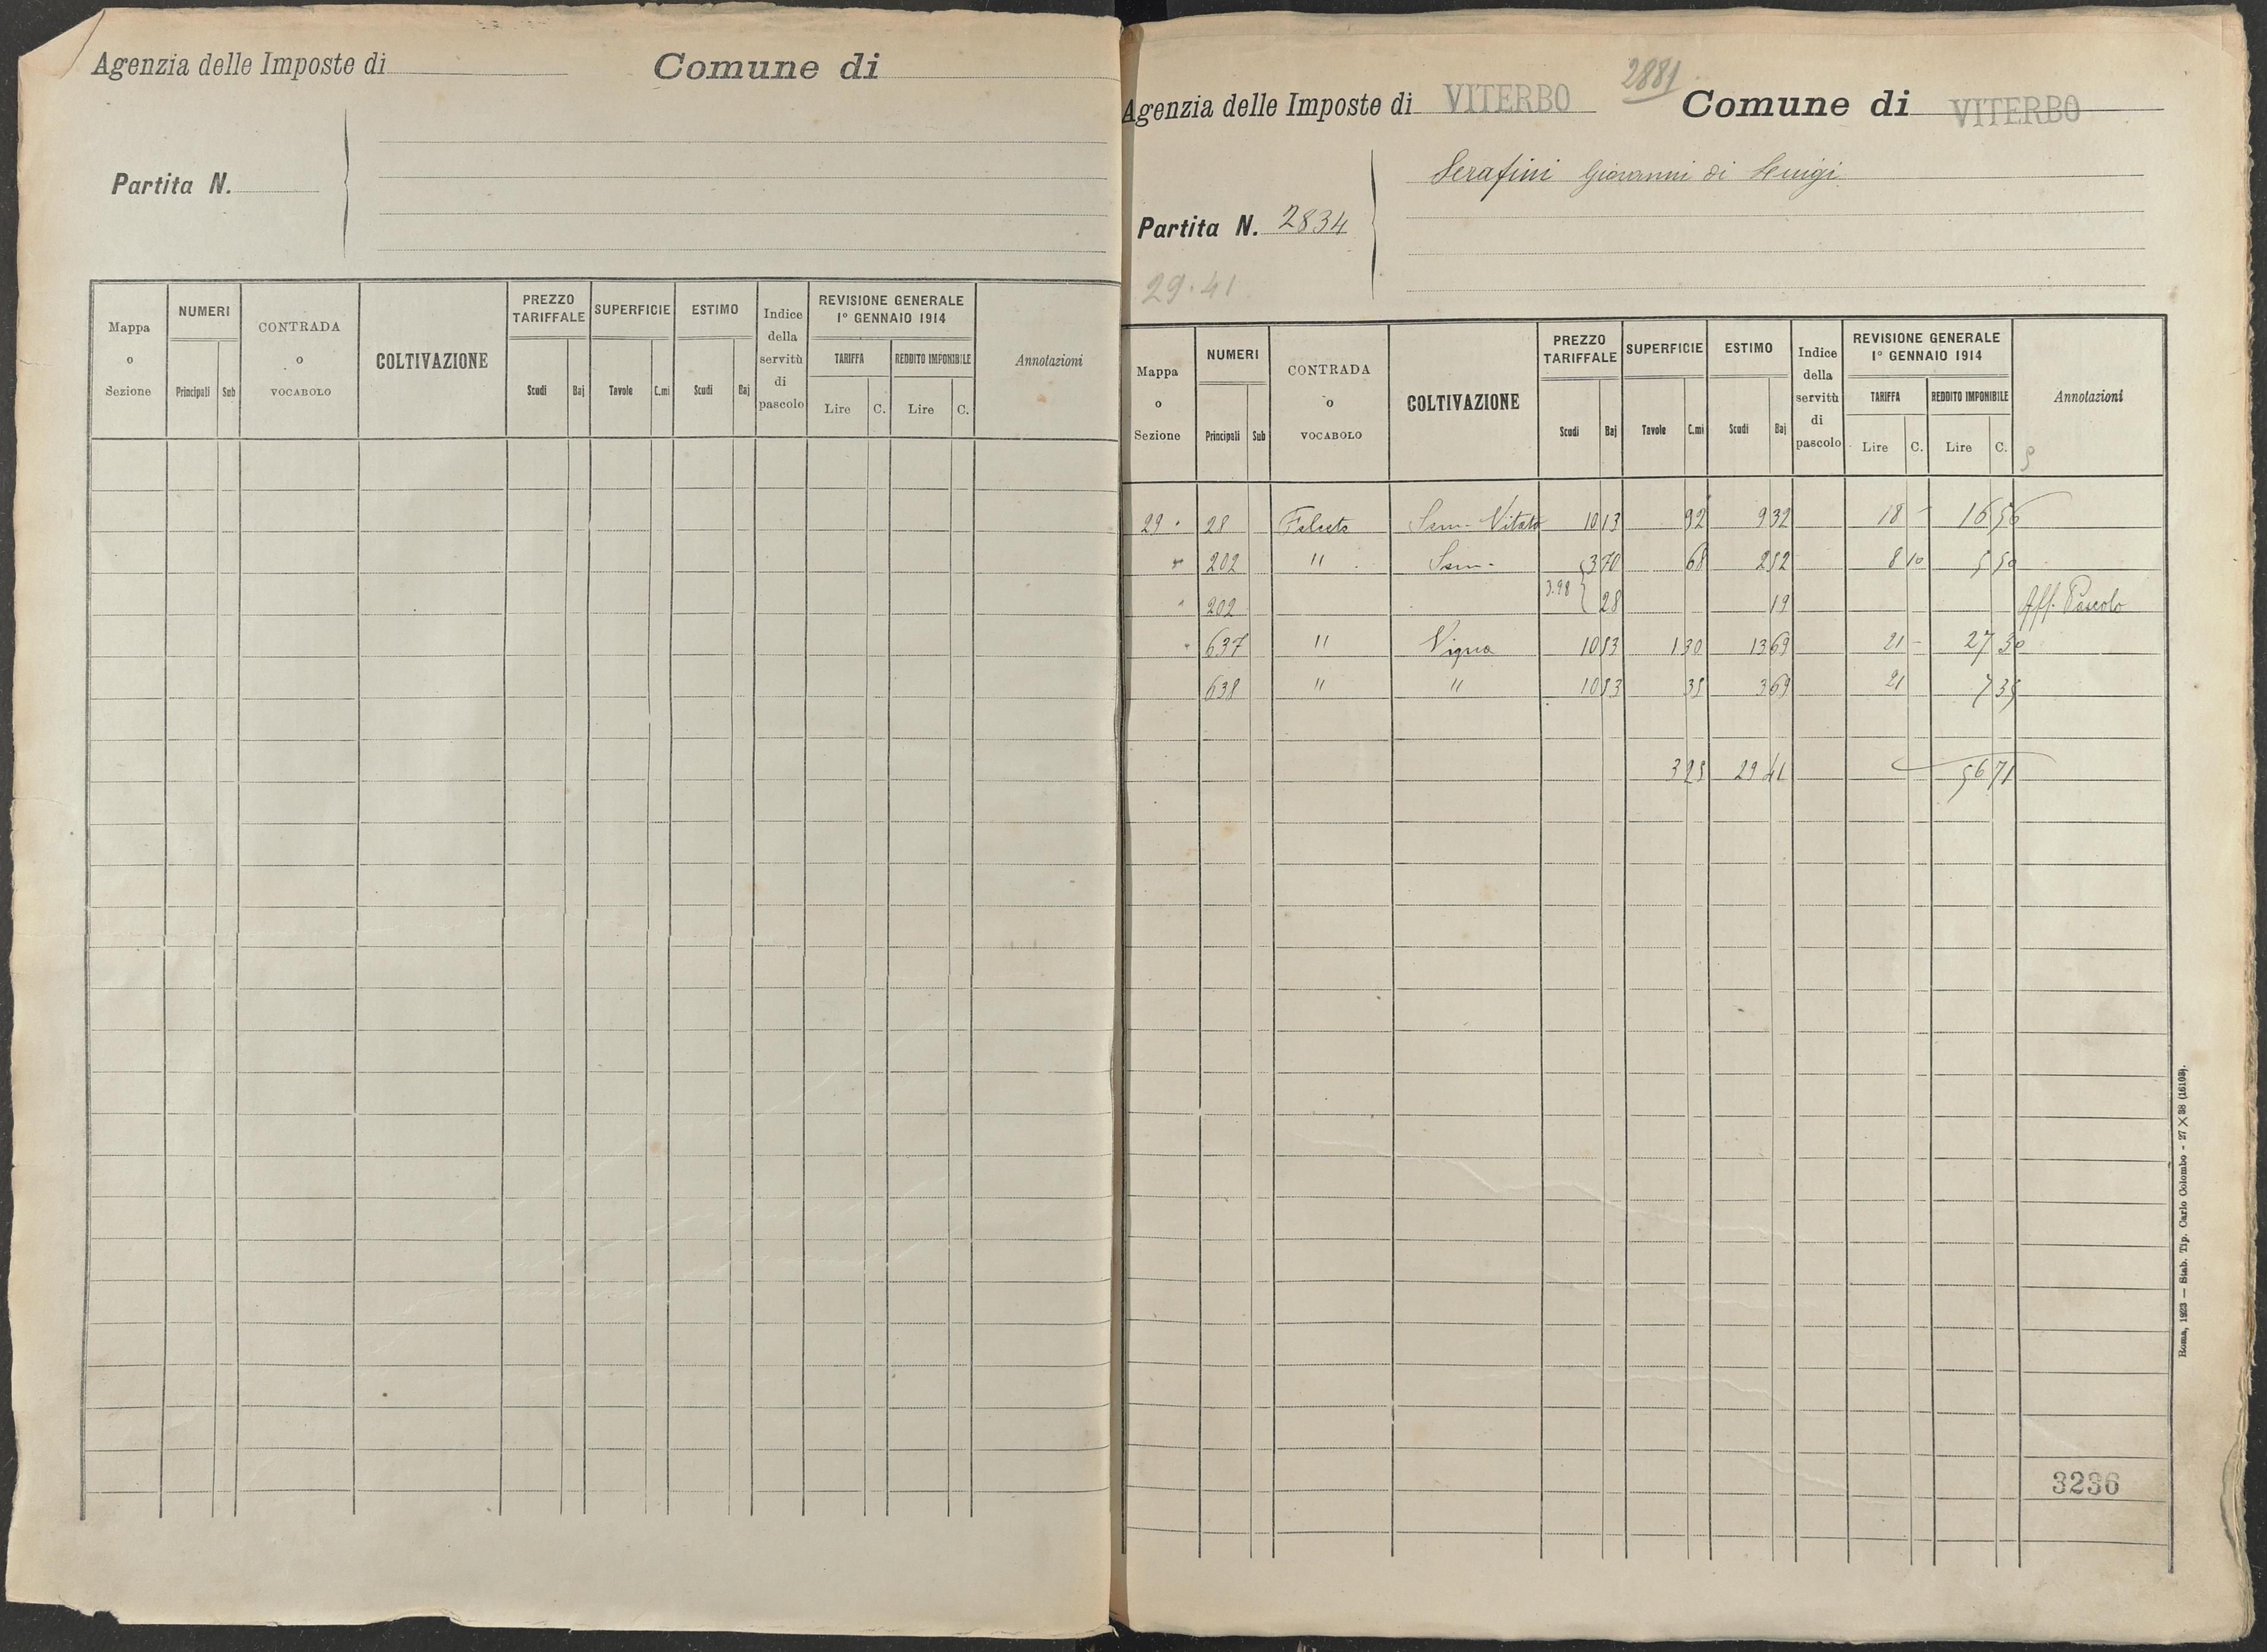 Agenzia delle Imposte di Comune di
Partita N.
Mappa o Sezione NUMERI Principali Sub CONTRADA o VOCABOLO COLTIVAZIONE PREZZO TARIFFALE Scudi Baj SUPERFICIE Tavole C.mi ESTIMO Scudi Baj Indice della servitù di pascolo REVISIONE GENERALE 1° GENNAIO 1914 TARIFFA Lire C. REDDITO IMPONIBILE Lire C. Annotazioni
2881
Agenzia delle Imposte di VITERBO Comune di VITERBO
Serafini Giovanni di Luigi
Partita N. 2834
29.41
Mappa o Sezione NUMERI Principali Sub CONTRADA o VOCABOLO COLTIVAZIONE PREZZO TARIFFALE Scudi Baj SUPERFICIE Tavole C.mi ESTIMO Scudi Baj Indice della servitù di pascolo REVISIONE GENERALE 1° GENNAIO 1914 TARIFFA Lire C. REDDITO IMPONIBILE Lire C. Annotazioni
29 28 Sem. Vitato 10 13 92 9 32 18 - 16 56
" 202 " Sem. 3 70 68 2 52 8 10 5 50
" 202 3.98 28 19 Aff. Pascolo
" 637 " Vigna 10 53 1 30 13 69 21 - 27 30
638 " " 10 53 35 3 69 21 7 35
3 25 29 41 56 71
3236
Roma, 1923 — Stab. Tip. Carlo Colombo - 27 X 38 (16103).